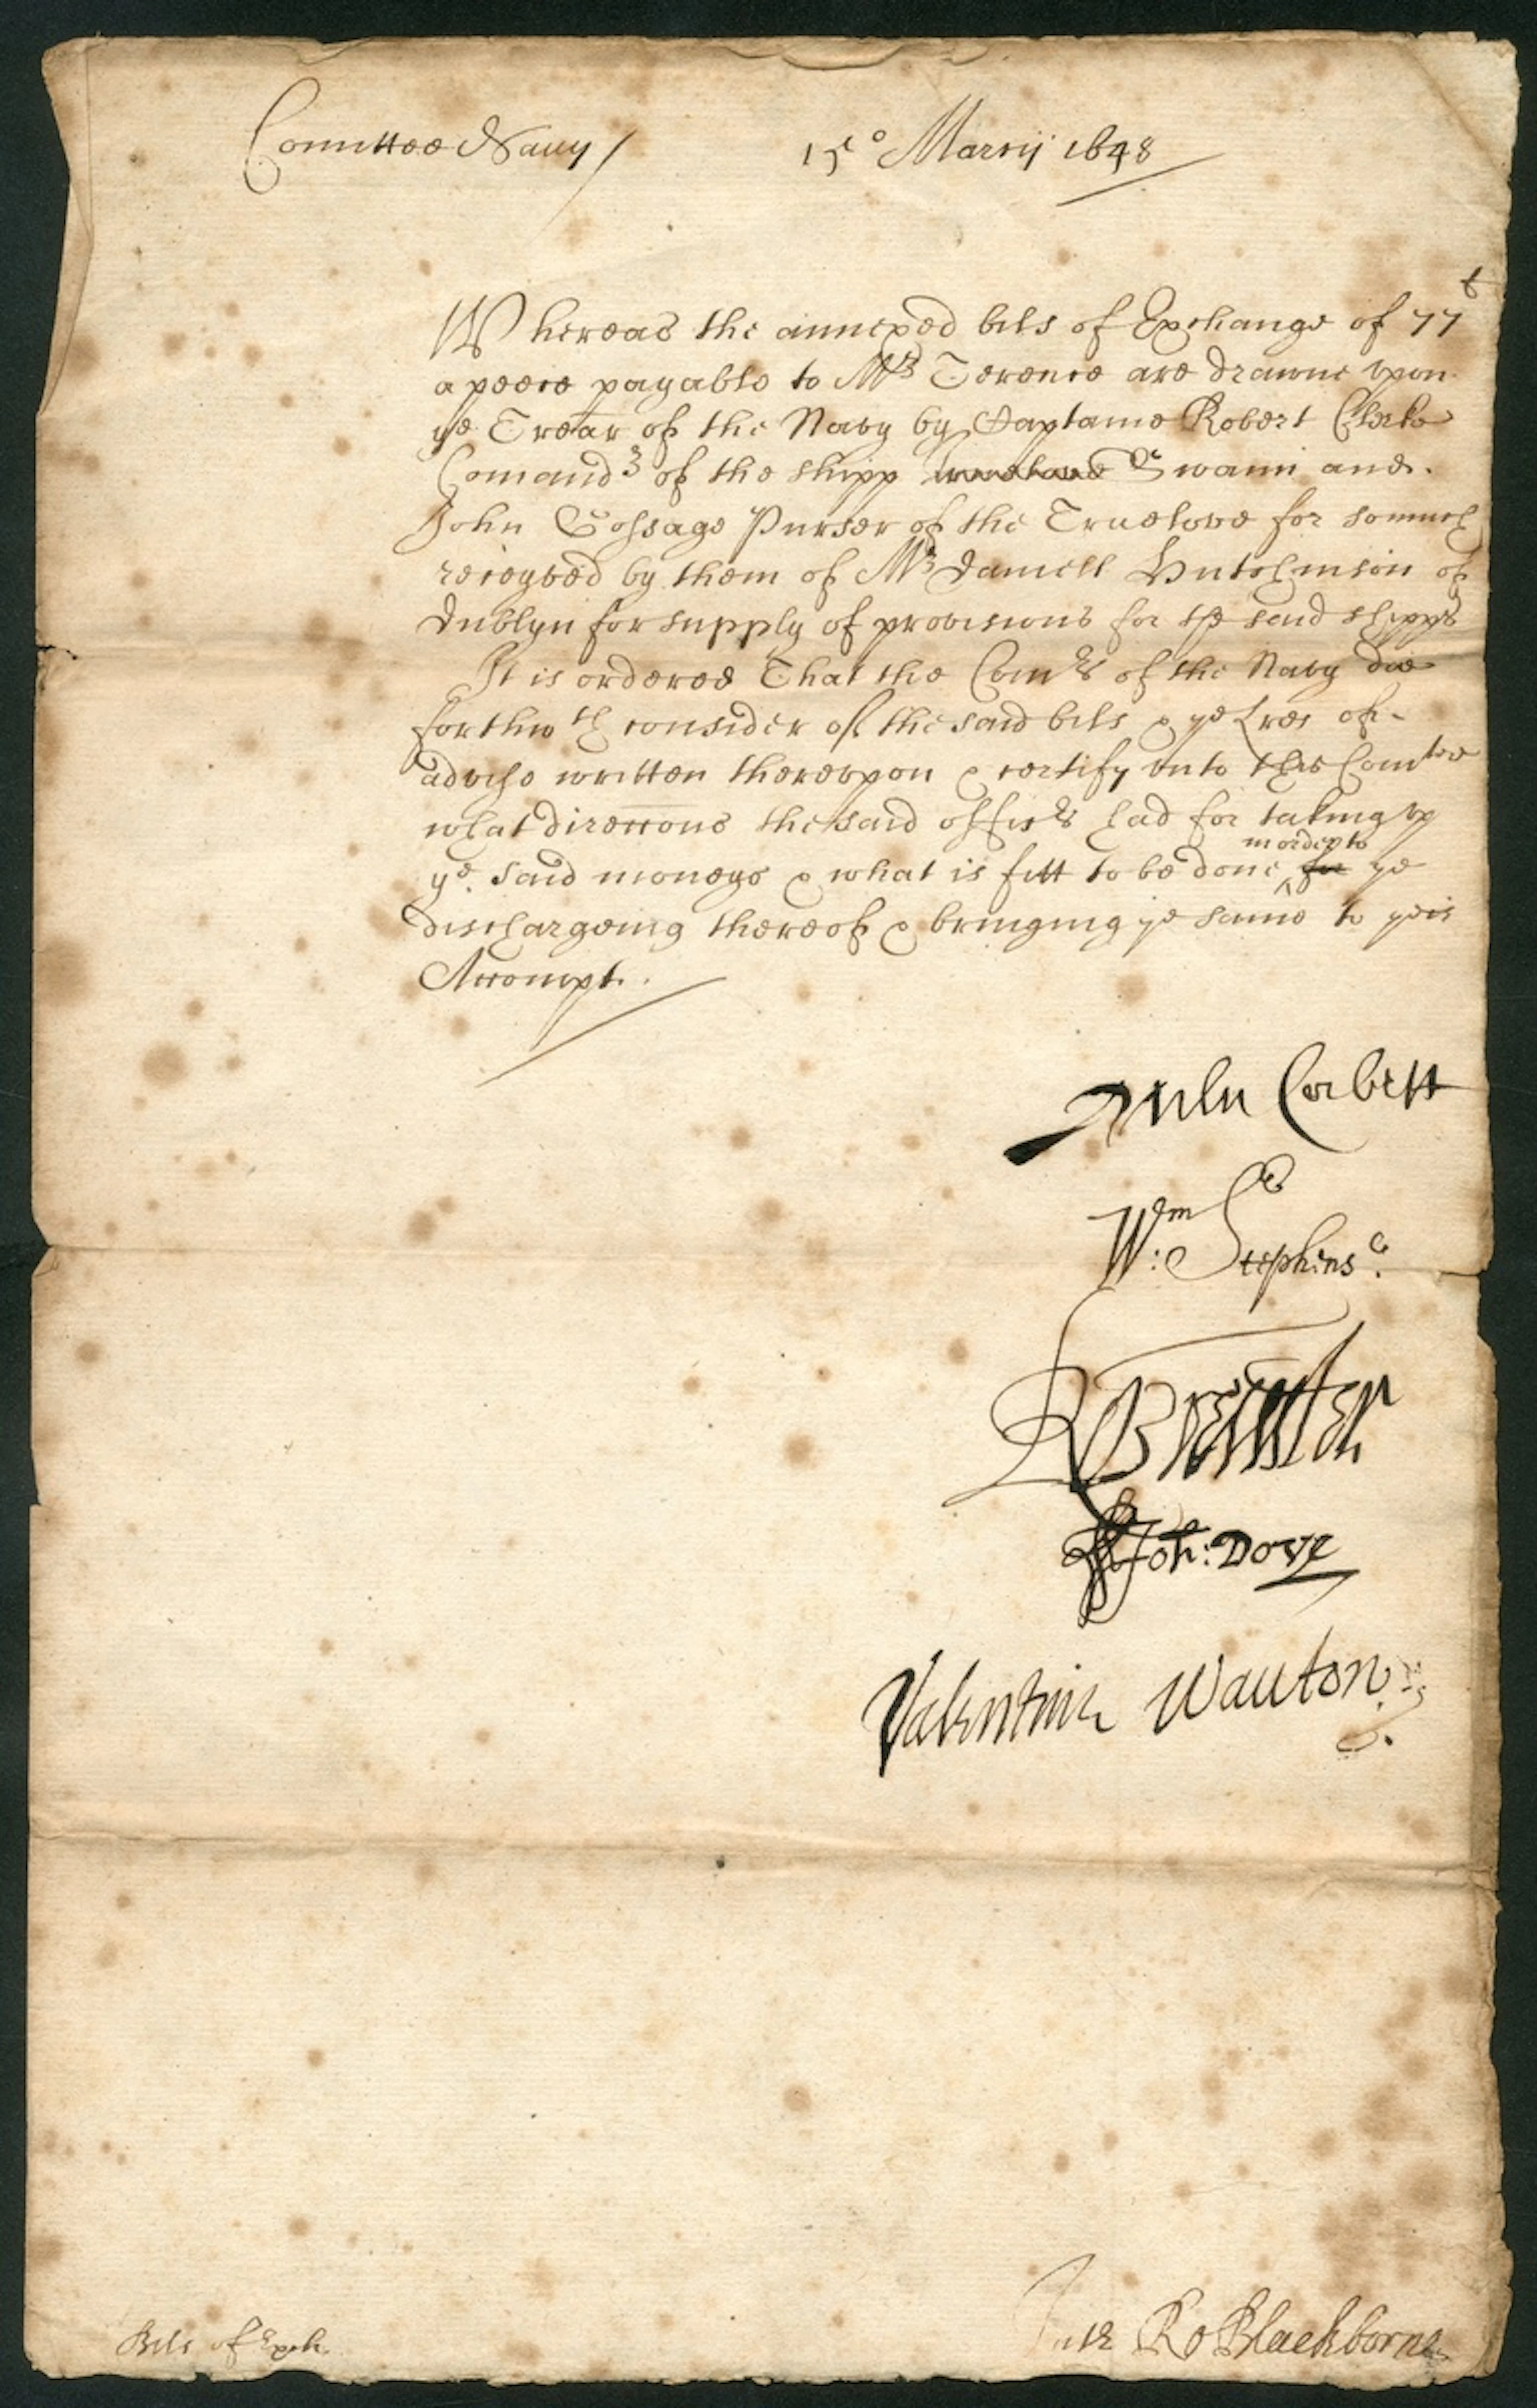 Comittee Navy /
15º Marcij 1648
Whereas the annexed bils of Exchange of 77 l
a peece payable to Mr Terence are drawne vpon
ye Trear of the Navy by Captaine Robert Clerke
Comandr of the shipp Truelove Swann and
John Gossage Purser of the Truelove for somuch
receyved by them of Mr Daniell Hutchinson of
Dublyn for supply of provisions for the said shipps
It is ordered That the Comrs of the Navy doe
forthwth consider of the said bils & ye Lres of
advise written therevpon & certify vnto this Comtee
what direccons the said officrs had for taking vp
ye said moneys & what is fitt to be done for ye
in order to
dischargeing thereof & bringing ye same to yeir
Accompt.
Miles Corbett
Wm: Stephens
R Brewster
Joh: Dove
Valentine Wauton
Bils of Exch.
Ro Blackborne